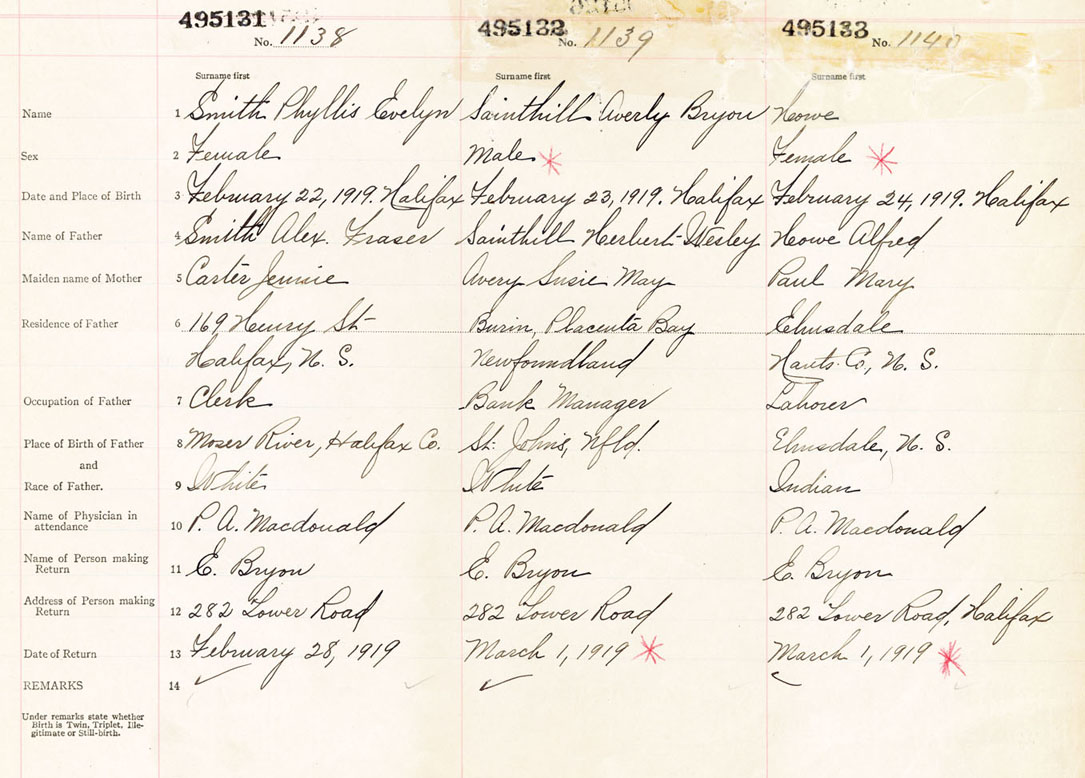 495131 495132 495133
No. 1138 No. 1139 No. 1140
Surname first Surname first Surname first
Name 1 Smith Phyllis Evelyn Sainthill Averly Bryon Howe
Sex 2 Female Male Female
Date and Place of Birth 3 February 22, 1919. Halifax February 23, 1919. Halifax February 24, 1919. Halifax
Name of Father 4 Smith Alex. Fraser Sainthill Herbert Wesley Howe Alfred
Maiden name of Mother 5 Carter Jennie Avery Susie May Paul Mary
Residence of Father 6 169 Henry St Burin, Placenta Bay Elmsdale
Halifax, N. S. Newfoundland Hants Co., N. S.
Occupation of Father 7 Clerk Bank Manager Laborer
Place of Birth of Father 8 Moser River, Halifax Co. St. Johns, Nfld. Elmsdale, N. S.
and
Race of Father. 9 White White Indian
Name of Physician in
attendance 10 P. A. Macdonald P. A. Macdonald P. A. Macdonald
Name of Person making
Return 11 E. Bryon E. Bryon E. Bryon
Address of Person making
Return 12 282 Tower Road 282 Tower Road 282 Tower Road, Halifax
Date of Return 13 February 28, 1919 March 1, 1919 March 1, 1919
REMARKS 14
Under remarks state whether
Birth is Twin, Triplet, Ille-
gitimate or Still-birth.